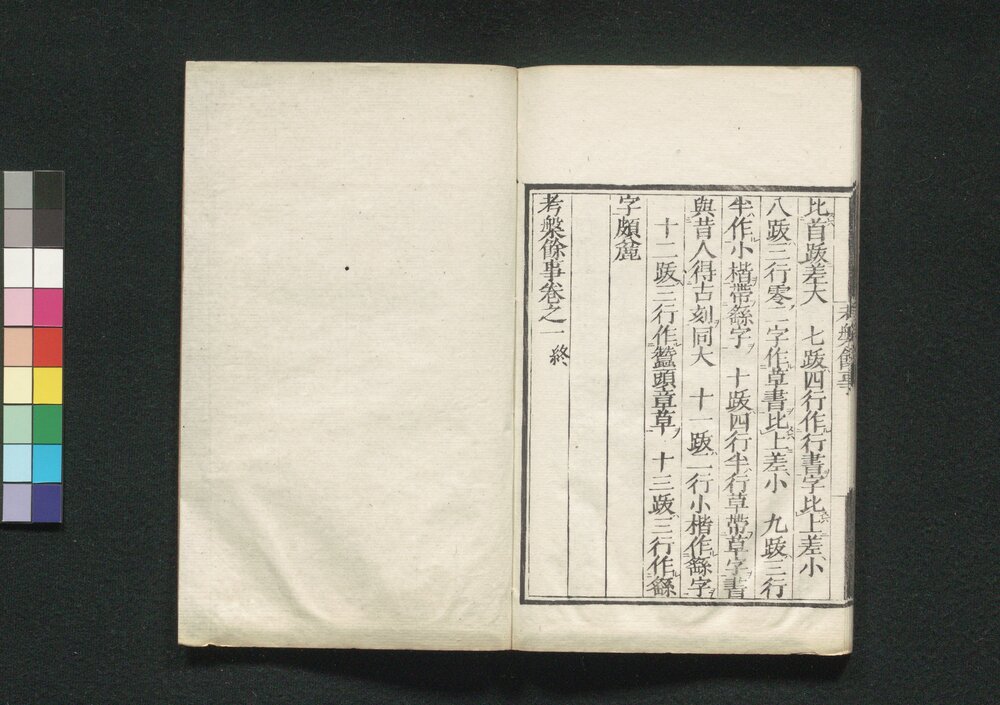 比首跋差大　七跋四行作行書字比上差小
八跋三行零二字作草書比上差小　九跋三行
半作小楷帶繇字　十跋四行半行草帶草字書
與昔人得古刻同大　十一跋二行小楷作繇字
十二跋三行作蠶頭章草　十三跋三行作繇
字頗麄
考槃餘事卷之一終
考槃餘事